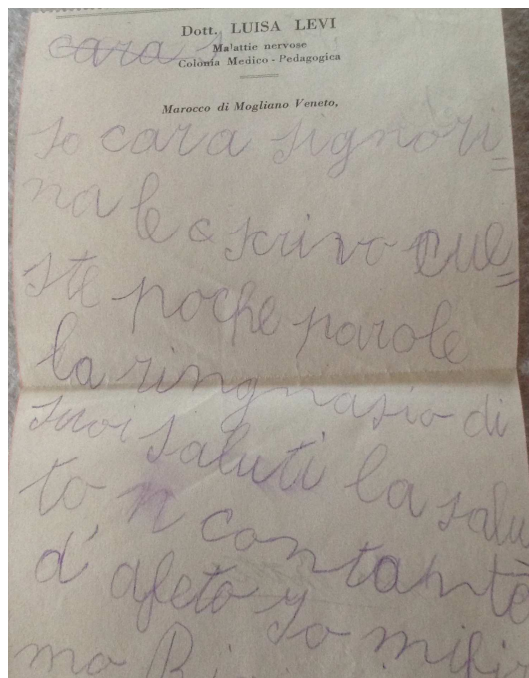 Dott. LUISA LEVI
cara s
Malattie nervose
Colonia Medico - Pedagogica
Marocco di Mogliano Veneto,
Io cara signori=
na le scrivo cue=
ste poche parole
la ringnasio di
suoi saluti la salu
to n contantto
d' afeto Io mifir
mo